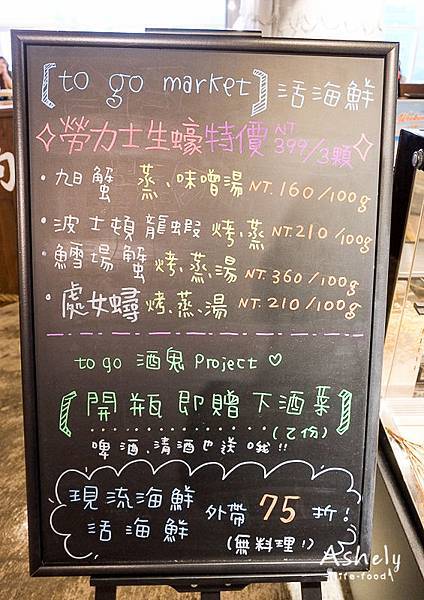 [to go market] 活海鮮
勞力士生蠔特價 NT 399/3顆
・旭蟹 蒸、味噌湯 NT.160/100g
・波士頓龍蝦 烤、蒸 NT.210/100g
・鱈場蟹 烤、蒸、湯 NT.360/100g
・處女蟳 烤、蒸、湯 NT.210/100g
to go 酒鬼 Project ♡
[開瓶即贈下酒菜]
(乙份)
啤酒、清酒也送哦!!
現流海鮮
活海鮮
外帶75折!
(無料理!)
Ashely
life-food